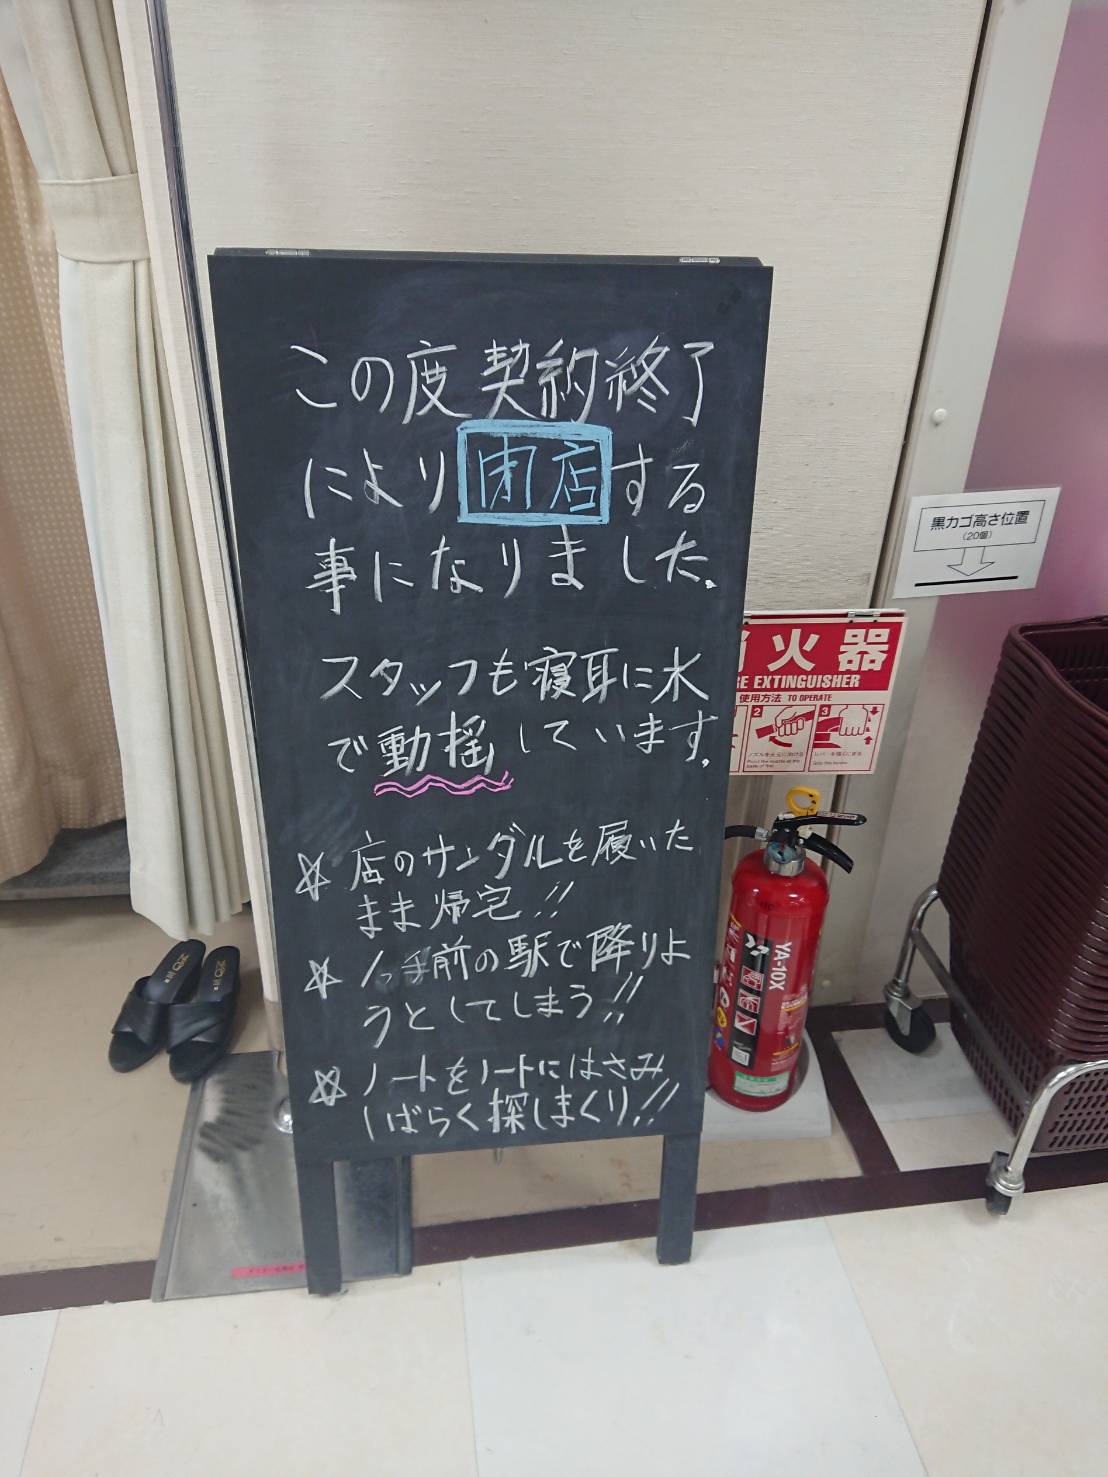 この度契約終了
により閉店する
事になりました。
スタッフも寝耳に水
で動揺しています。
☆ 店のサンダルを履いた
まま帰宅!!
☆ 1つ手前の駅で降りよ
うとしてしまう!!
☆ ノートをノートにはさみ
しばらく探しまくり!!
黒カゴ高さ位置
(20個)
火器
EXTINGUISHER
使用方法 TO OPERATE
2 3
YA-10X